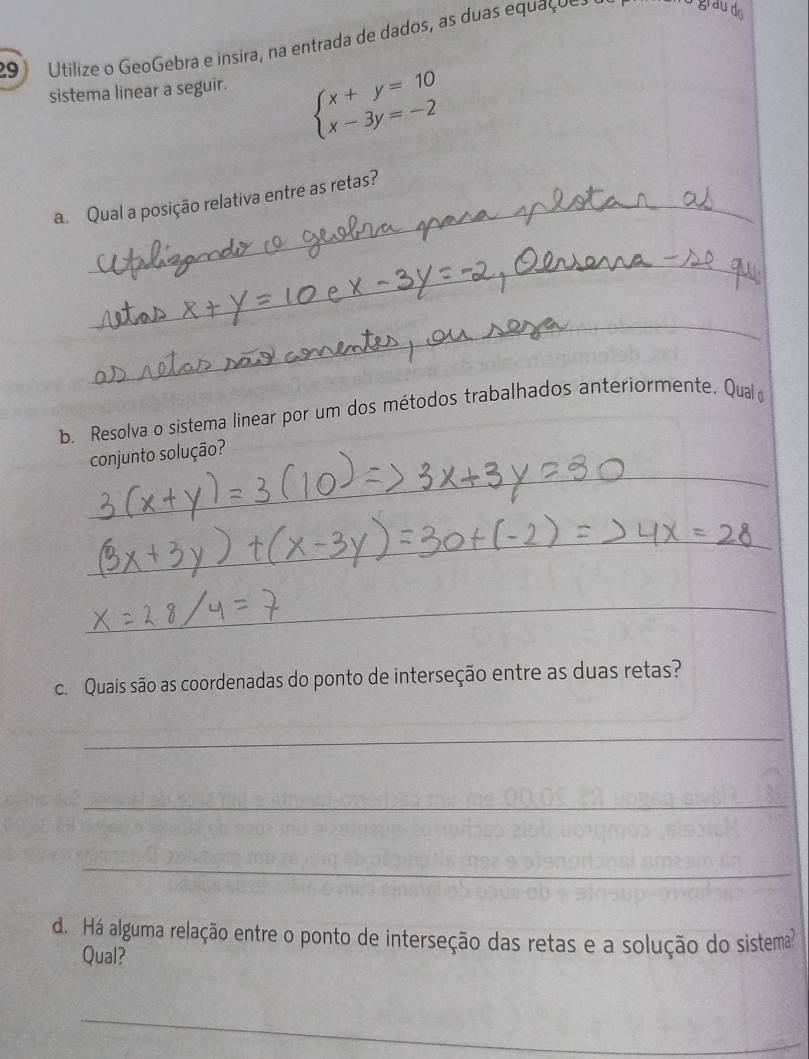 29 Utilize o GeoGebra e insira, na entrada de dados, as duas equações grau do
sistema linear a seguir.
x + y = 10
x - 3y = -2
a. Qual a posição relativa entre as retas?
Utilizando o geobra para plotar as
retas x + y = 10 e x - 3y = -2, Oerserva-se qu
as retas são correntes, ou seja
b. Resolva o sistema linear por um dos métodos trabalhados anteriormente. Qual o
conjunto solução?
3(x+y) = 3(10) => 3x+3y = 30
(3x+3y) + (x-3y) = 30+(-2) => 4x = 28
x = 28/4 = 7
c. Quais são as coordenadas do ponto de interseção entre as duas retas?
d. Há alguma relação entre o ponto de interseção das retas e a solução do sistema?
Qual?